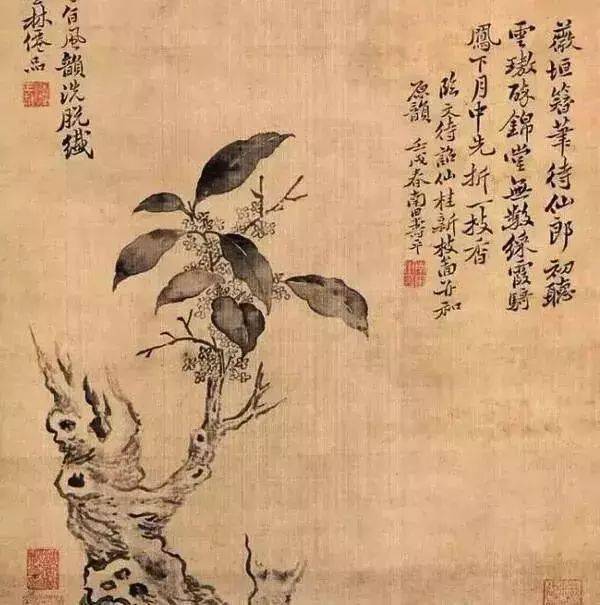 薇垣簪筆待仙郎初聽
雲璈碎錦堂無數綵霞騎
鳳下月中先折一枝香
臨文待詔仙桂新枝啚亦和
原韻 壬戌春南田壽平
風韻洗脫纖
林僊品